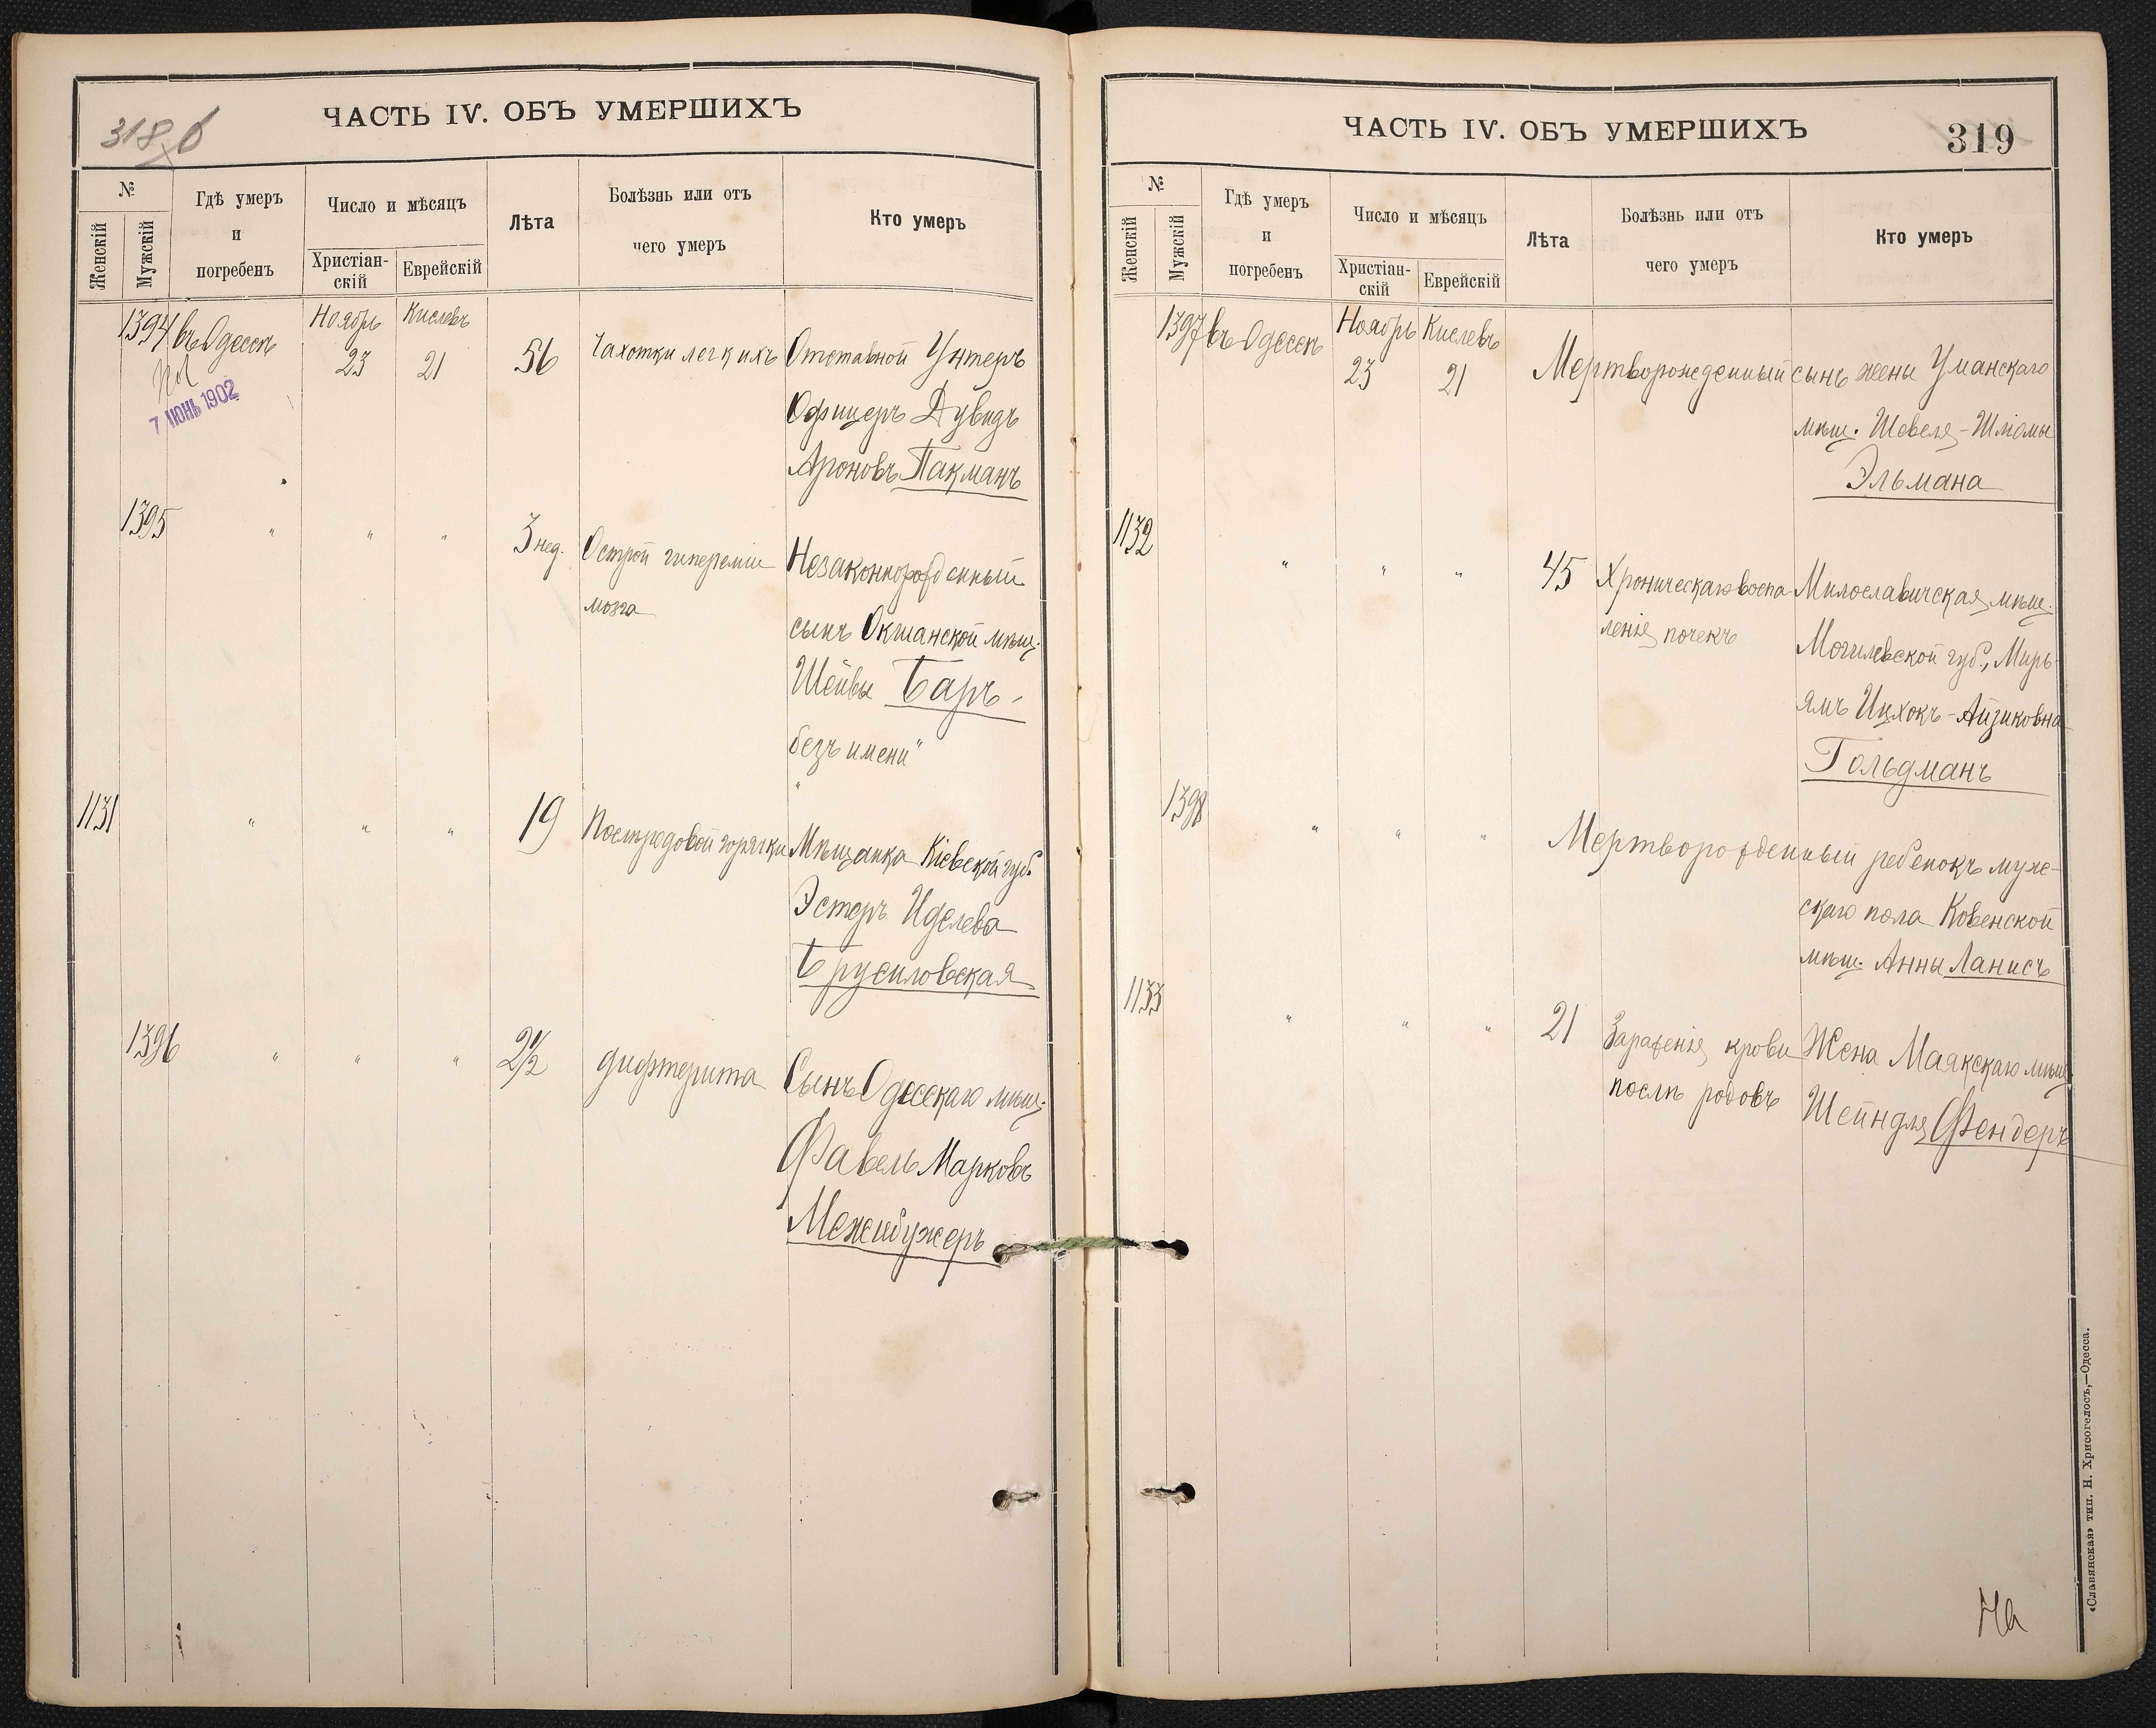 318 б
ЧАСТЬ IV. ОБЪ УМЕРШИХЪ
№
Женскій
Мужскій
Гдѣ умеръ
и
погребенъ
Число и мѣсяцъ
Христіан-
скій
Еврейскій
Лѣта
Болѣзнь или отъ
чего умеръ
Кто умеръ
1394 въ Одессѣ Ноябрь Кислевъ
23 21 56 Чахотки легкихъ Отставной Унтеръ
7 ІЮНЬ 1902
Офицеръ Дувидъ
Ароновъ Пакманъ
1395 " " " 3 нед. Острой гипереміи Незаконнорожденный
мозга
сынъ Окманской мѣщ.
Шейвы Баръ -
безъ имени"
1131 " " " 19 Послѣродовой горячки Мѣщанка Кіевской губ.
Эстеръ Иделева
Брусиловская
1396 " " " 2 1/2 дифтерита Сынъ Одесскаго мѣщ.
Фавель Марковъ
Межибужеръ
ЧАСТЬ IV. ОБЪ УМЕРШИХЪ
319
№
Женскій
Мужскій
Гдѣ умеръ
и
погребенъ
Число и мѣсяцъ
Христіан-
скій
Еврейскій
Лѣта
Болѣзнь или отъ
чего умеръ
Кто умеръ
1397 въ Одессѣ Ноябрь Кислевъ
23 21 Мертворожденный сынъ жены Уманскаго
мѣщ. Шевеля-Шлёмы
Эльмана
1132 " " " 45 Хроническаго воспа- Милославичская мѣщ.
ленія почекъ
Могилевской губ., Мирь-
ямъ Ицхокъ-Айзиковна
Гольдманъ
1398 " " " Мертворожденный ребенокъ муже-
скаго пола Ковенской
мѣщ. Анны Ланисъ
1133 " " " 21 Зараженія крови Жена Маякскаго мѣщ.
послѣ родовъ
Шейндля Фендеръ
На
«Славянская» тип. Н. Хрисогелосъ,—Одесса.